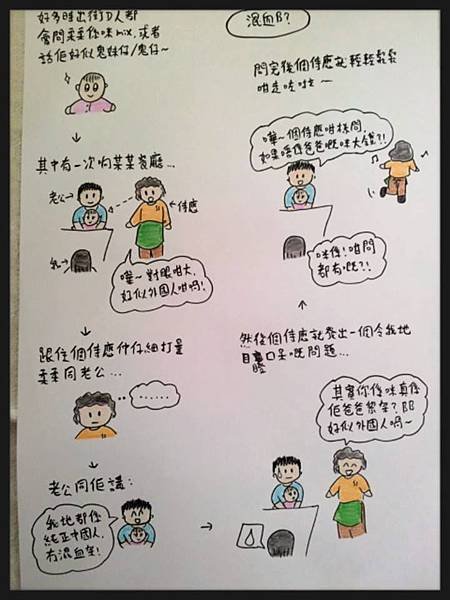 混血B?
好多時出街D人都
會問柔柔係咪mix,或者
話佢好似鬼妹仔/鬼仔~
其中有一次喺某某餐廳...
老公
侍應
我
嘩~對眼咁大,
好似外國人咁喎!
跟住個侍應仲仔細打量
柔柔同老公...
......
老公同佢講:
我地都係
純正中國人,
冇混血架!
然後個侍應就發出一個令我地
目瞪口呆嘅問題...
其實你係咪真係
佢爸爸黎架?BB
好似外國人喎~
問完後個侍應就輕輕鬆鬆
咁走咗啦~
嘩~個侍應咁樣問,
如果唔係爸爸嘅咪大鑊?!
咪係!咁問
都有嘅?!